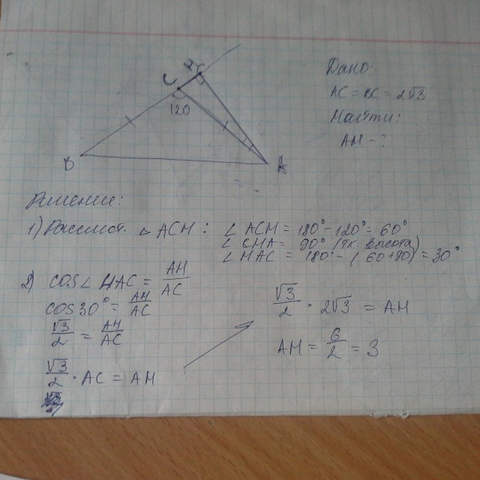 H
C
120
B
A
Дано:
AC = BC = 2√3
Найти:
AH - ?
Решение:
1) Рассмот. △ ACH : ∠ ACH = 180° - 120° = 60°
∠ CHA = 90° (т.к. высота)
∠ HAC = 180° - (60+90) = 30°
2) cos∠ HAC = AH/AC
cos 30° = AH/AC
√3/2 = AH/AC
√3/2 · AC = AH
√3/2 · 2√3 = AH
AH = 6/2 = 3